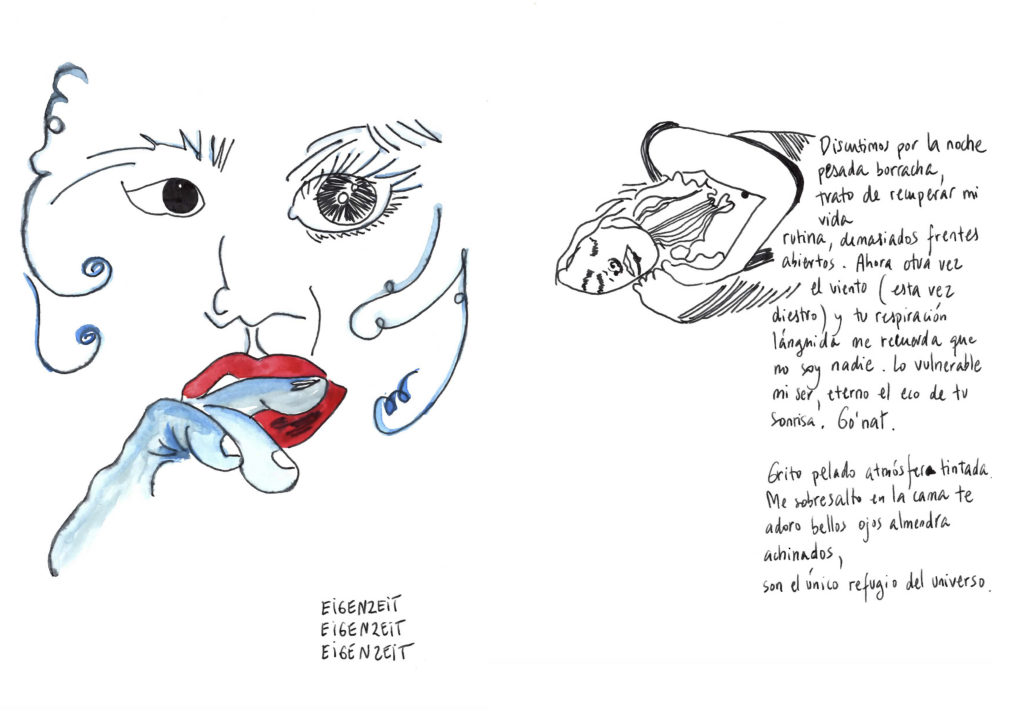 EIGENZEIT
EIGENZEIT
EIGENZEIT
Discutimos por la noche
pesada borracha,
trato de recuperar mi
vida
rutina, demasiados frentes
abiertos. Ahora otra vez
el viento (esta vez
diestro) y tu respiración
lánguida me recuerda que
no soy nadie. Lo vulnerable
mi ser, eterno el eco de tu
sonrisa. Gó'nat.
Grito pelado atmósfera tintada.
Me sobresalto en la cama te
adoro bellos ojos almendra
achinados,
son el único refugio del universo.